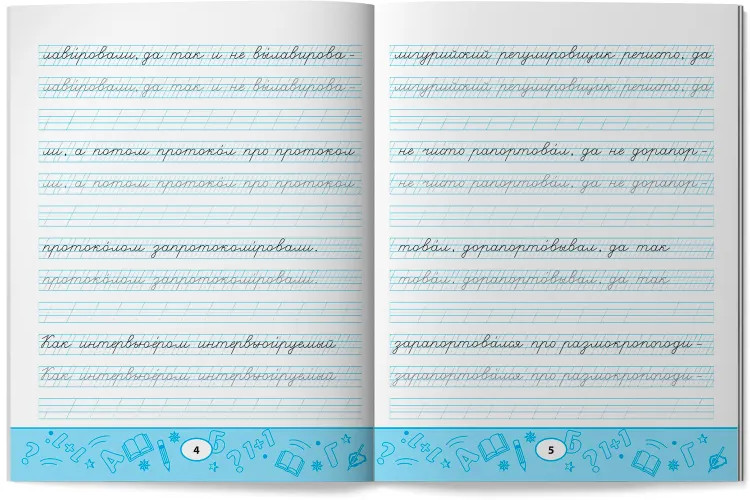 лави́ровали, да так и не вы́лавирова-
лави́ровали, да так и не вы́лавирова-
ли, а потом протоко́л про протокол
ли, а потом протоко́л про протокол
протоко́лом запротоколи́ровали.
протоко́лом запротоколи́ровали.
Как интервьюе́ром интервьюи́руемый
Как интервьюе́ром интервьюи́руемый
4
лигурийский регулировщик речисто, да
лигурийский регулировщик речисто, да
не чисто рапортова́л, да не дорапор-
не чисто рапортова́л, да не дорапор-
това́л, дорапорто́вывал, да так
това́л, дорапорто́вывал, да так
зарапортова́лся про размокропогоди́-
зарапортова́лся про размокропогоди́-
5